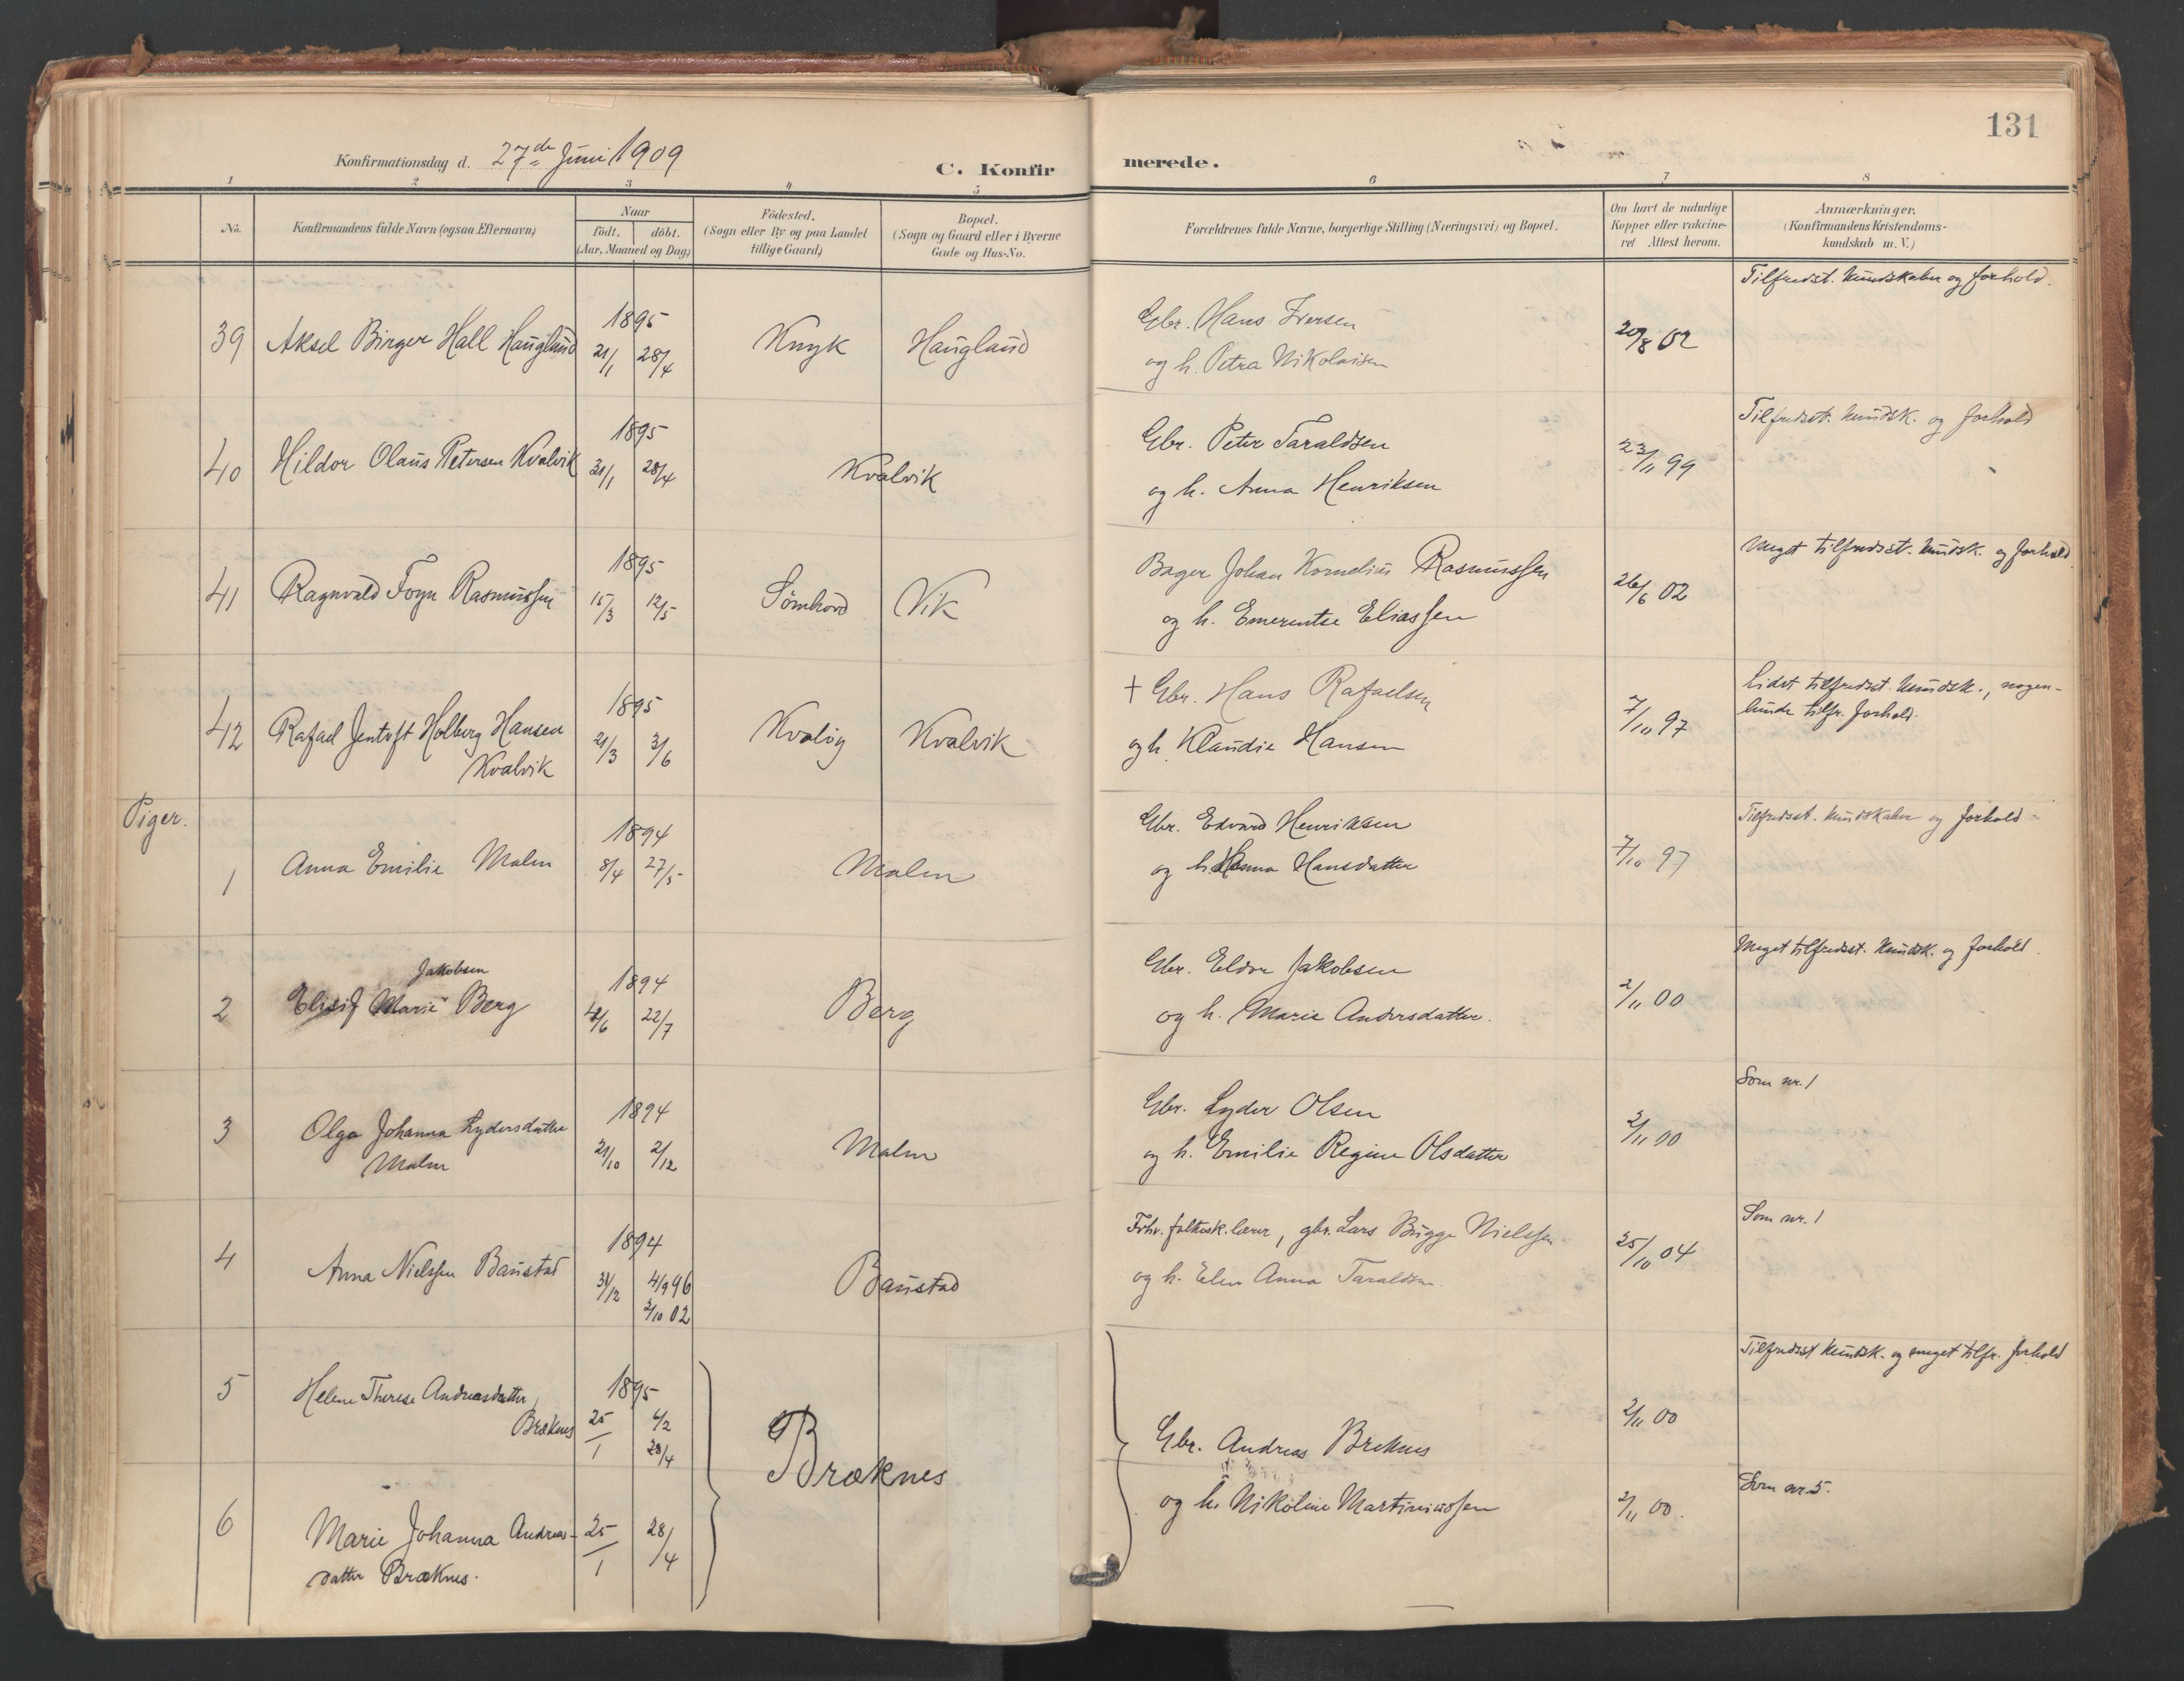 131
Konfirmationsdag d. 27de Juni 1909
C. Konfirmerede.
1 2 3 4 5 6 7 8
No.
Konfirmandens fulde Navn (ogsaa Efternavn)
Naar
födt. döbt.
(Aar, Maaned og Dag)
Födested.
(Sogn eller By og paa Landet
tillige Gaard)
Bopæl.
(Sogn og Gaard eller i Byerne
Gade og Hus-No.
Forældrenes fulde Navne, borgerlige Stilling (Næringsvei) og Bopæl.
Om havt de naturlige
Kopper eller vakcine-
ret Attest herom.
Anmærkninger.
(Konfirmandens Kristendoms-
kundskab m. V.)
Tilfredst. kundskaber og forhold.
39 Aksel Birger Hall Haugland 1895 21/1 28/4 Knyk Haugland
Gbr. Hans Iversen
og h. Petra Nikolaisen
20/8 02
Tilfredsst. kundsk. og forhold
40 Hildor Olaus Petersen Kvalvik 1895 31/1 28/4 Kvalvik
Gbr. Peter Taraldsen
og h. Anna Henriksen
23/11 99
Meget tilfredsst. kundsk. og forhold
41 Ragnvald Foyn Rasmussen 1895 15/3 12/5 Sömhovd Vik
Bager Johan Kornelius Rasmussen
og h. Emerentse Eliassen
26/6 02
Lidet tilfredsst. kundsk., nogen-
lunde tilfr. forhold.
42 Rafael Jentoft Holberg Hansen
Kvalvik
1895 21/3 3/6 Kvaløy Kvalvik
+ Gbr. Hans Rafaelsen
og h. Klaudie Hansen
7/10 97
Piger.
Tilfredsst. kundskaber og forhold
1 Anna Emilie Malm 1894 8/4 27/5 Malm
Gbr. Edvard Henriksen
og h. Hanna Hansdatter
7/10 97
Meget tilfredsst. kundsk. og forhold.
Jakobsen
2 Elisif Marie Berg 1894 4/6 22/7 Berg
Gbr. Eldor Jakobsen
og h. Marie Andersdatter.
2/11 00
Som nr. 1
3 Olga Johanna Lydersdatter
Malm
1894 21/10 2/12 Malm
Gbr. Lyder Olsen
og h. Emilie Regine Olsdatter
2/11 00
Som nr. 1
4 Anna Nielssen Baustad 1894 31/12 4/9 96
2/10 02
Baustad
Fhv. folkesk.lærer, gbr. Lars Bugge Nielssen
og h. Elen Anna Taraldsen
25/10 04
Tilfredsst kundsk. og meget tilfr. forhold
5 Helene Therese Andreasdatter
Bræknes
1895 25/1 4/2
28/4
Bræknes
Gbr. Andreas Breknes
og h. Nikoline Martinussen
2/11 00
Som nr. 5.
6 Marie Johanna Andreas-
datter Bræknes.
25/1 28/4
2/11 00.